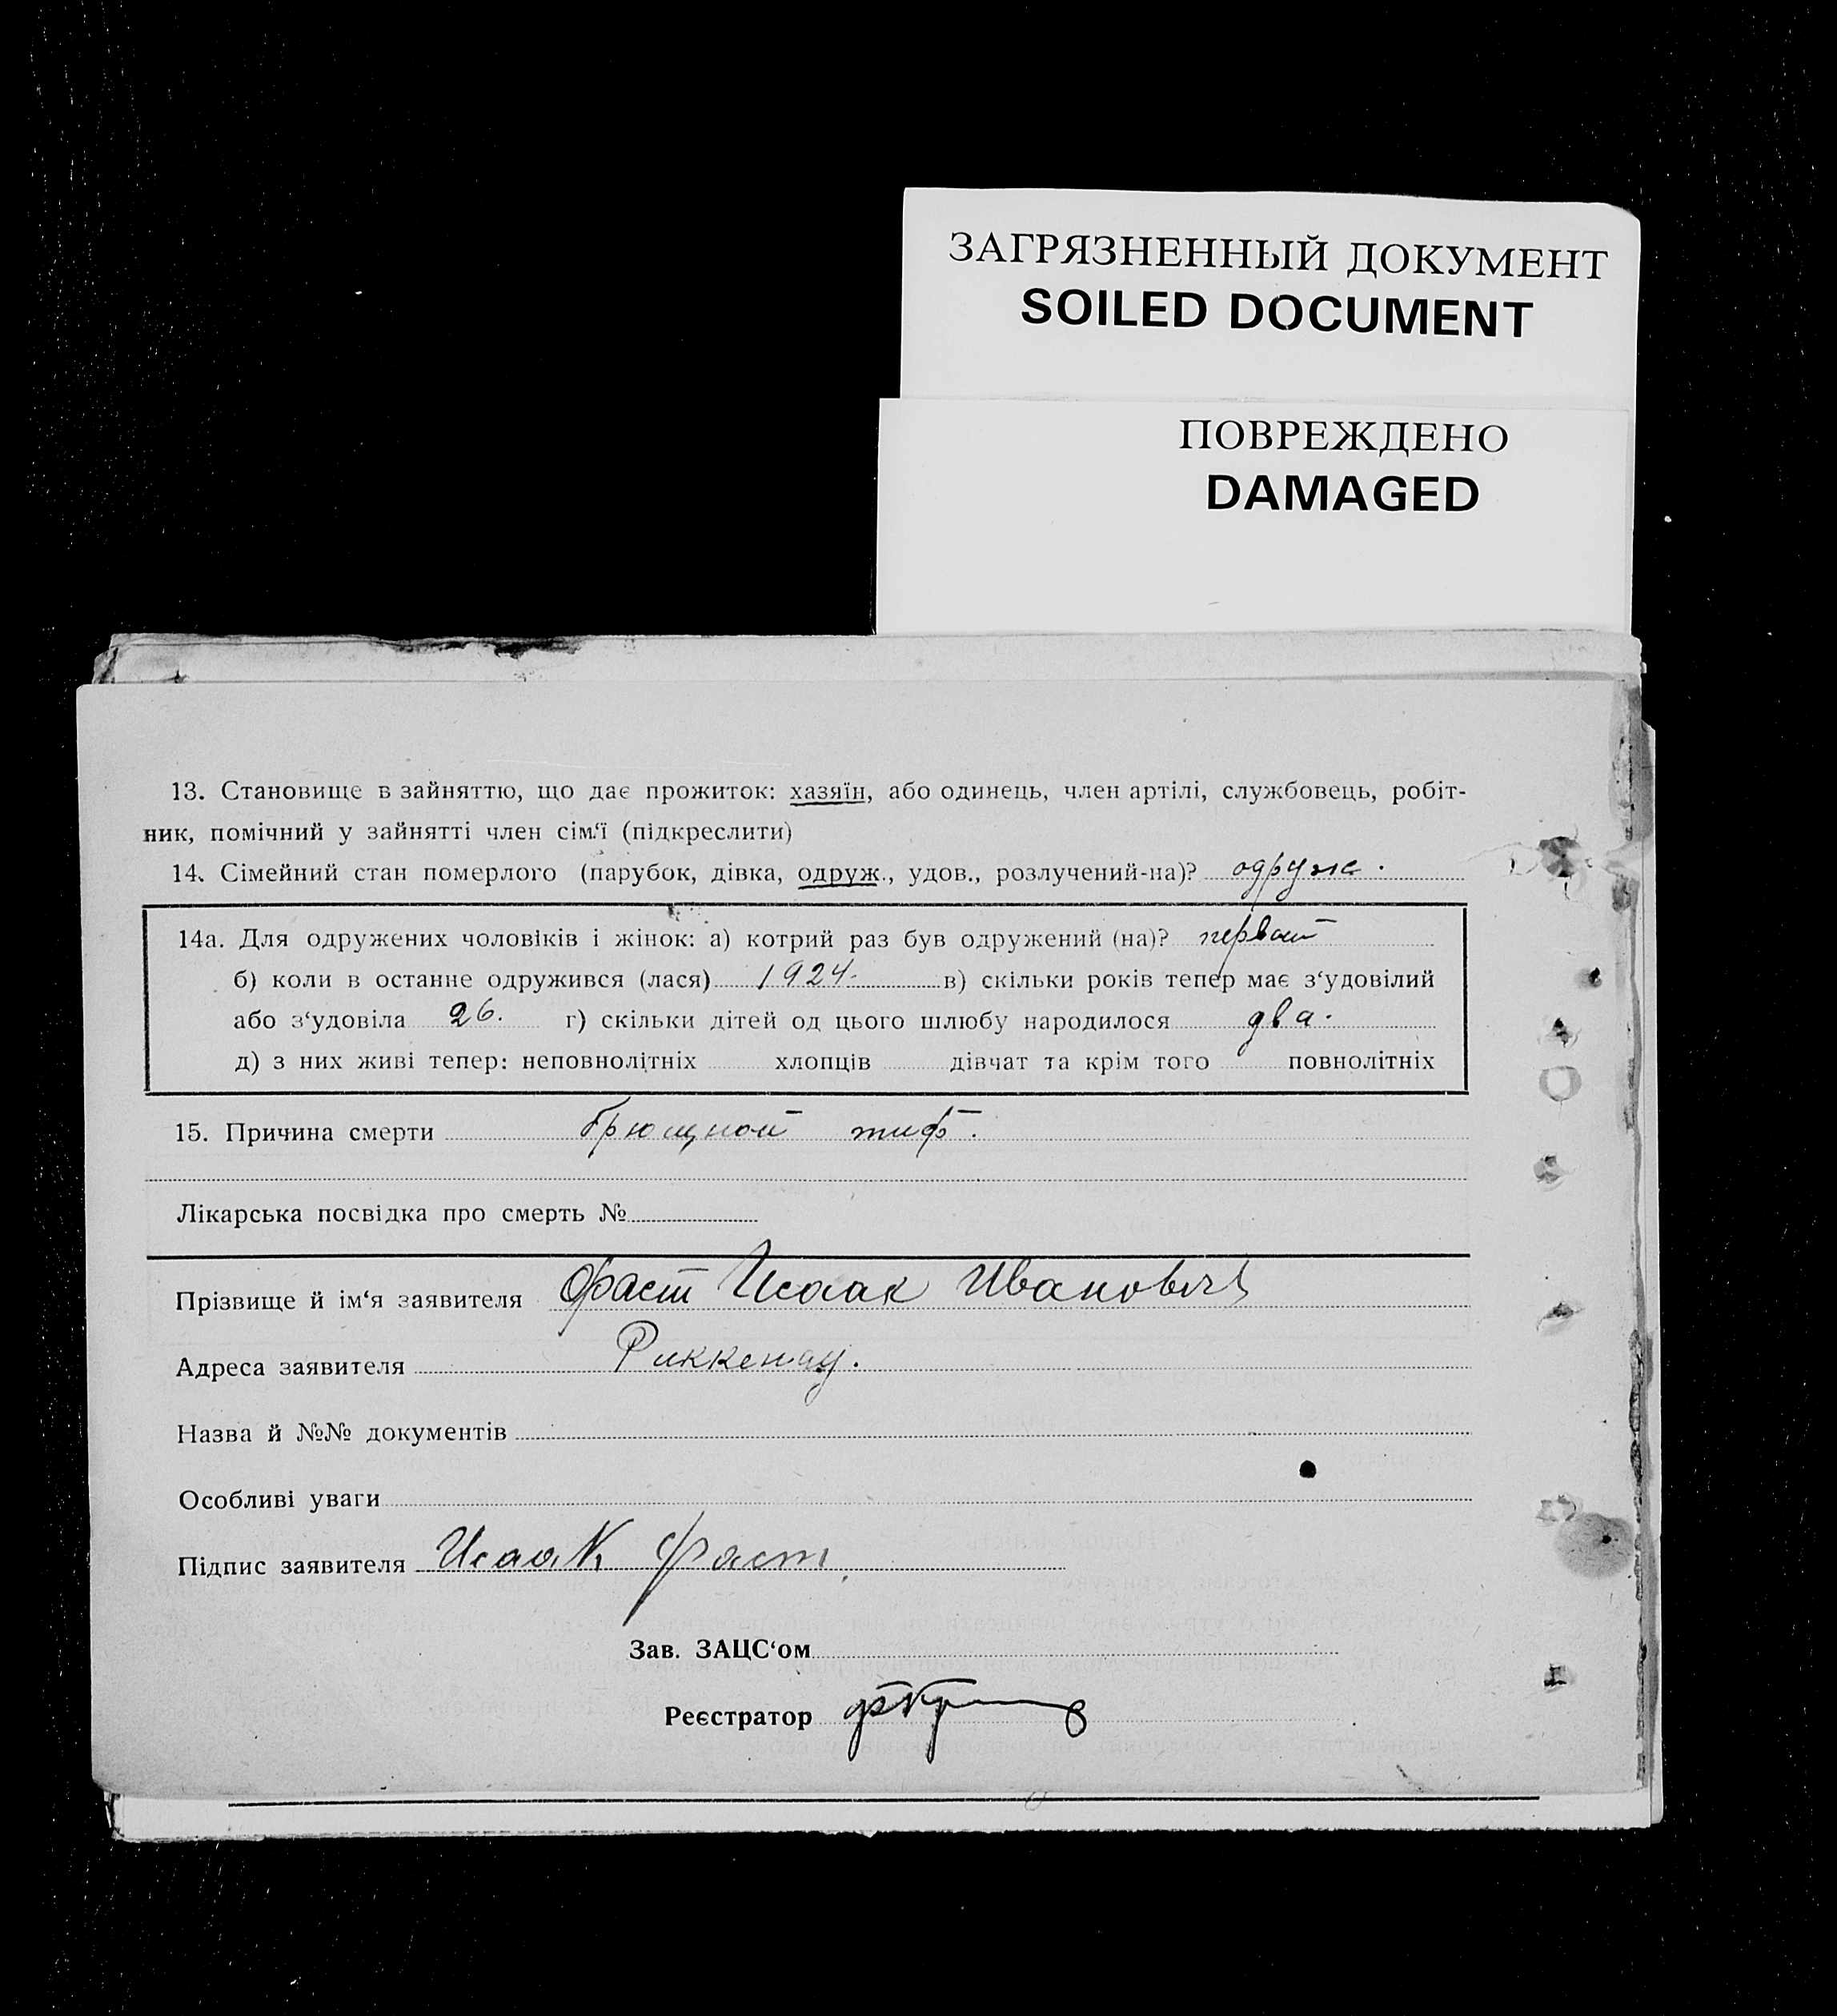 ЗАГРЯЗНЕННЫЙ ДОКУМЕНТ
SOILED DOCUMENT
ПОВРЕЖДЕНО
DAMAGED
13. Становище в зайняттю, що дає прожиток: хазяїн, або одинець, член артілі, службовець, робіт-
ник, помічний у зайнятті член сім‘ї (підкреслити)
14. Сімейний стан померлого (парубок, дівка, одруж., удов., розлучений-на)? одруж.
14а. Для одружених чоловіків і жінок: а) котрий раз був одружений (на)? первый
б) коли в останне одружився (лася) 1924. в) скільки років тепер має з‘удовілий
або з‘удовіла 26. г) скільки дітей од цього шлюбу народилося два.
д) з них живі тепер: неповнолітніх хлопців дівчат та крім того повнолітніх
15. Причина смерти брюшной тиф.
Лікарська посвідка про смерть №
Прізвище й ім‘я заявителя Фаст Исаак Иванович
Адреса заявителя Риккенау.
Назва й №№ документів
Особливі уваги
Підпис заявителя Исаак Фаст
Зав. ЗАЦС‘ом
Реєстратор